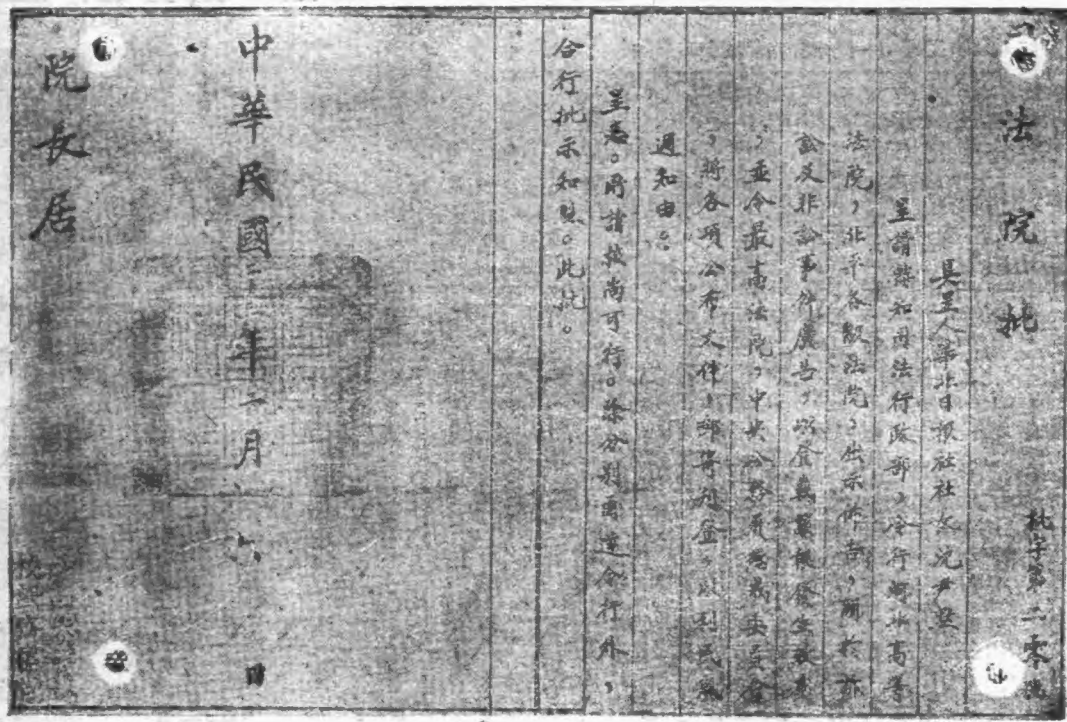 司法院批
批字第二零號
具呈人華北日報社社長沈尹默
呈請轉知司法行政部，令行河北高等
法院，北平各級法院，出示佈告，關於訴
訟及非訟事件廣告，以登載
，並令最高法院，中央公務員懲戒委員會
，將各項公布文件，郵寄刊登，以利民眾
週知由。
呈悉。所請核尚可行。除分別函達令行外，
合行批示知照。此批。
中華民國二 年二月六日
院長居